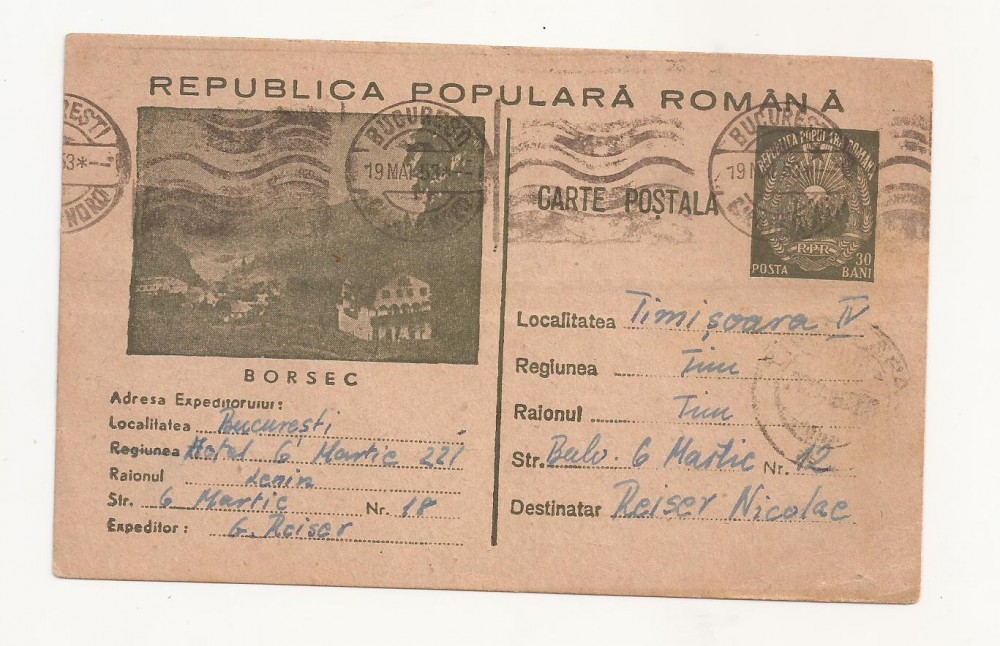 REPUBLICA POPULARĂ ROMÂNĂ
BUCUREȘTI
19 MAI 53
BUCUREȘTI
REPUBLICA POPULARA ROMANA
RPR
POSTA
30
BANI
CARTE POȘTALA
BORSEC
Adresa Expeditorului:
Localitatea București
Regiunea Hotel 6 Martie 221
Raionul Lenin
Str. 6 Martie Nr. 18
Expeditor: G. Reiser
Localitatea Timișoara IV
Regiunea Tim
Raionul Tim
Str. Bulv. 6 Martie Nr. 12
Destinatar Reiser Nicolae